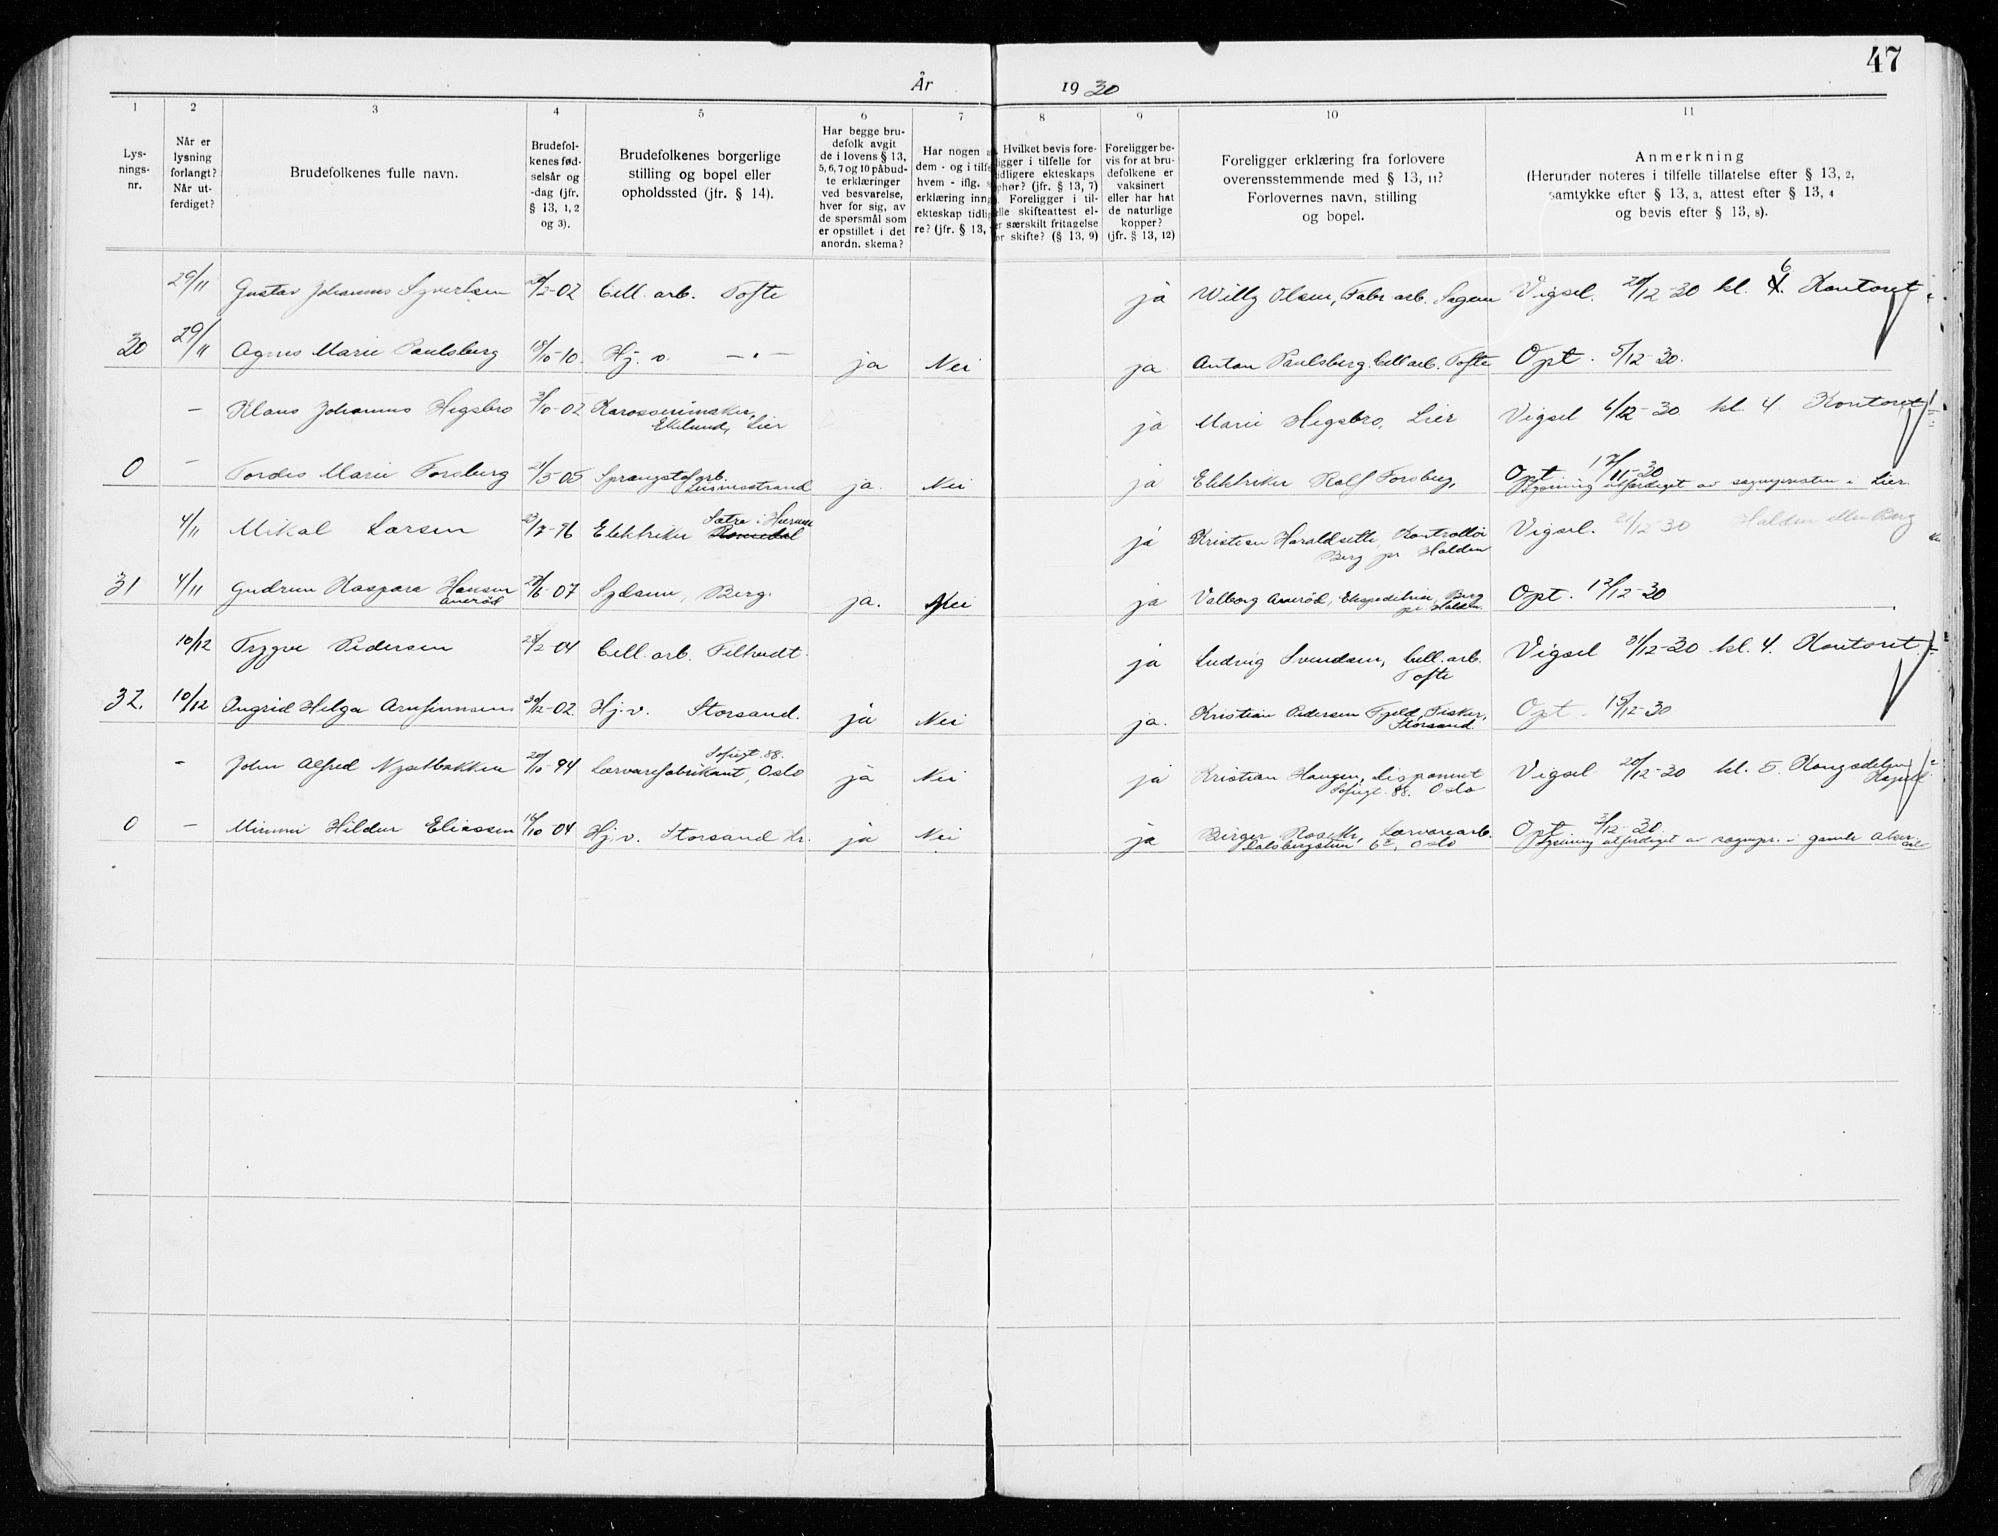 47
År 1930
1 2 3 4 5 6 7 8 9 10 11
Lys-
nings-
nr.
Når er
lysning
forlangt?
Når ut-
ferdiget?
Brudefolkenes fulle navn.
Brudefol-
kenes fød-
selsår og
-dag (jfr.
§ 13, 1, 2
og 3).
Brudefolkenes borgerlige
stilling og bopel eller
opholdssted (jfr. § 14).
Har begge bru-
defolk avgit
de i lovens § 13,
5, 6, 7 og 10 påbud-
te erklæringer
ved besvarelse,
hver for sig, av
de spørsmål som
er opstillet i det
anordn. skema?
Har nogen a
dem - og i tilfe
hvem - iflg. s
erklæring inng
ekteskap tidlig
re? (jfr. § 13,
Hvilket bevis fore-
ligger i tilfelle for
tidligere ekteskaps
ophør? (jfr. § 13, 7)
Foreligger i til-
elle skifteattest el-
er særskilt fritagelse
or skifte? (§ 13, 9)
Foreligger be-
vis for at bru-
defolkene er
vaksinert
eller har hat
de naturlige
kopper?
(jfr. § 13, 12)
Foreligger erklæring fra forlovere
overensstemmende med § 13, 11?
Forlovernes navn, stilling
og bopel.
Anmerkning
(Herunder noteres i tilfelle tillatelse efter § 13, 2,
samtykke efter § 13, 3, attest efter § 13, 4
og bevis efter § 13, 8).
29/11 Gustav Johannes Syvertsen 2-02 Cell. arb. Tofte ja Willy Olsen, Fabr arb. Sagen Vigsel. 20/12-30 kl. 6. Kontoret
30 29/11 Agnes Marie Paulsberg 18/10-10. Hj. v. —"— ja Nei ja Anton Paulsberg. Cell arb. Tofte Opt. 5/12-30.
– Klaus Johannes Hegsbro 10-02 Karosserimaker,
Eklund, Lier ja Marie Hegsbro, Lier Vigsel 6/12-30 kl. 4. Kontoret
0 – Tordis Marie Forsberg 21/5-05 Sprængstofarb.
ja. Nei ja Elektriker Rolf Forsberg, Opt 17/11-30
Lysning utferdiget av sognepresten i Lier.
4/11 Mikal Larsen 23/7-96 Elektriker Sætre i Hurum ja Kristian Haraldsette, Kontrollør
Berg pr Halden Vigsel. 21/12-30 Halden eller Berg
31 4/11 Gudrun Kaspara Hansen
Anerød 6-07 Sydame, Berg. ja. Nei ja Valborg Anerød, Ekspeditrise, Berg
pr Halden. Opt. 12/12-30
10/12 Trygve Pedersen 28/2-04 Cell. arb. Filtvedt. ja Ludvig Svendsen, Cell. arb.
Tofte Vigsel 31/12-30 kl. 4. Kontoret.
32. 10/12 Ingrid Helga 30/12-02. Hj. v. Storsand. ja Nei ja. Kristian Pedersen Fjeld, Fisker,
Storsand Opt. 15/12-30
– John Alfred Nysetbakken 20/10-94 Lærvarefabrikant, Sofiegt. 88.
Oslo ja Nei ja Kristian Haugen, disponent
Sofiegt. 88. Oslo Vigsel 20/12-30 kl. 5. Kongsdelen
Kapel
0 – Mimmi Hildur Eliassen 16/10-04 Hj. v. Storsand Hr. ja Nei ja Birger Lærvarearb.
Oslo Opt 3/12-30
Lysning utferdiget av sognepr. i gamle Aker